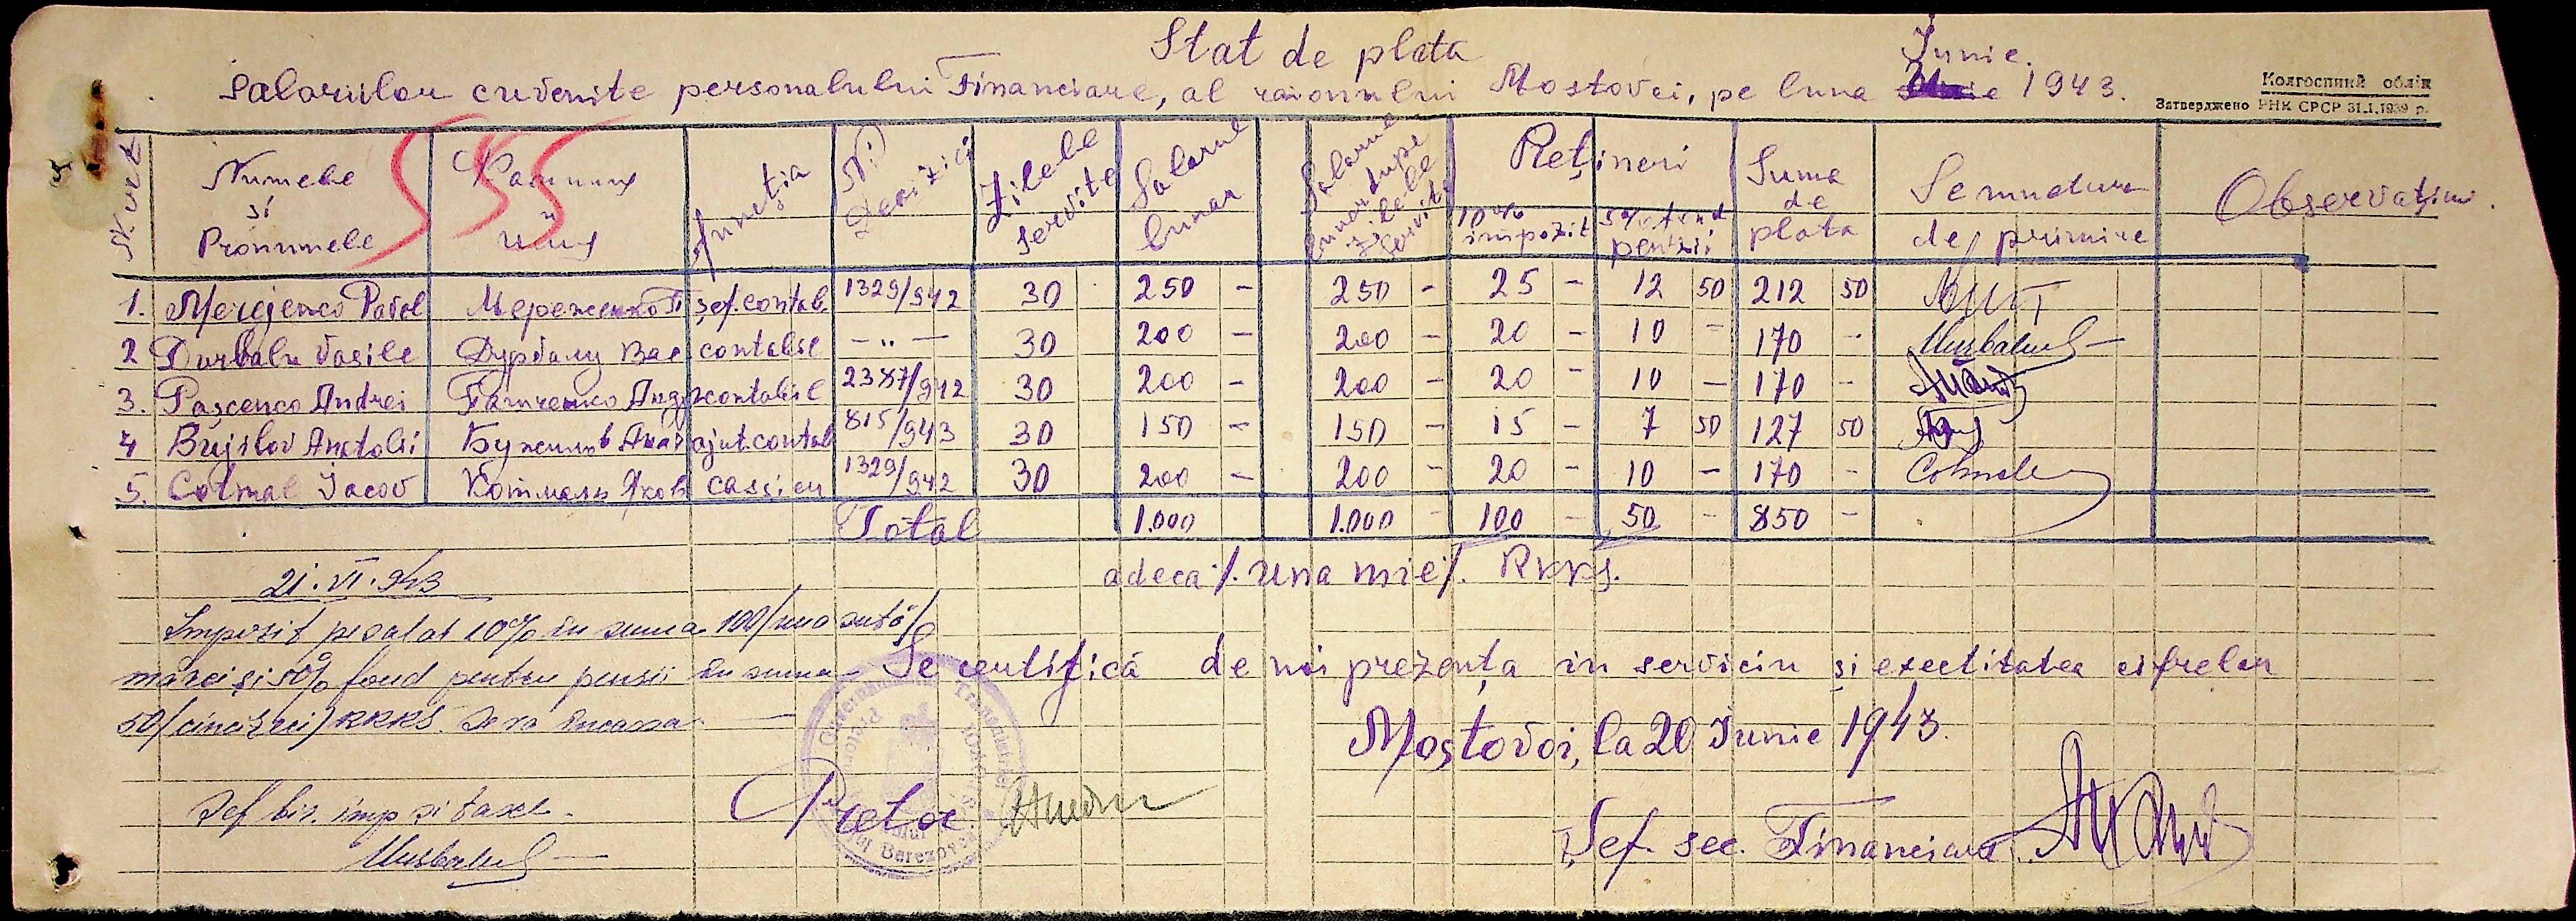 Stat de plata
Salariilor cuvenite personalului Financiare, al raionului Mostovei, pe luna Iunie 1943.
Колгоспний облік
Затверджено РНК СРСР 31.I.1939 р.
555
Numele și Pronumele | Фамилия и имя | Funcția | Nr. Deciziei | Zilele servite | Salarul lunar | Salarul lunar dupe zilele servite | Rețineri | Suma de plata | Semnatura de primire | Observațiuni.
10% impozit | 5% fond pensii
1. Merejenco Pavel | Мереженко П | șef. contab. | 1329/942 | 30 | 250 - | 250 - | 25 - | 12 50 | 212 50
2 Durbalu Vasile | Дурбалу Вас | contabil | — „ — | 30 | 200 - | 200 - | 20 - | 10 - | 170 -
3. Pașcenco Andrei | Пащенко Андр | contabil | 2387/942 | 30 | 200 - | 200 - | 20 - | 10 - | 170 -
4 Bujilov Anatolii | Бужилов Анат | ajut. contab | 815/943 | 30 | 150 - | 150 - | 15 - | 7 50 | 127 50
5. Cotmal Iacov | Котмаль Яков | cassier | 1329/942 | 30 | 200 - | 200 - | 20 - | 10 - | 170 - | Cotmal
Total | 1.000 | 1.000 - | 100 - | 50 - | 850 -
adeca ./. una mie ./. RKKS.
21.VI.943
Impozit pe salar 10% în suma 100/una sută/
mărci și 5% fond pentru pensii în suma
50/cincizeci/ RKKS. Se va încassa
Șef bir. imp și taxe.
Se certifică de noi prezența in serviciu și exectitatea cifrelor
Moștovoi, la 20 Iunie 1943.
Pretor
Șef. sec. Financiara